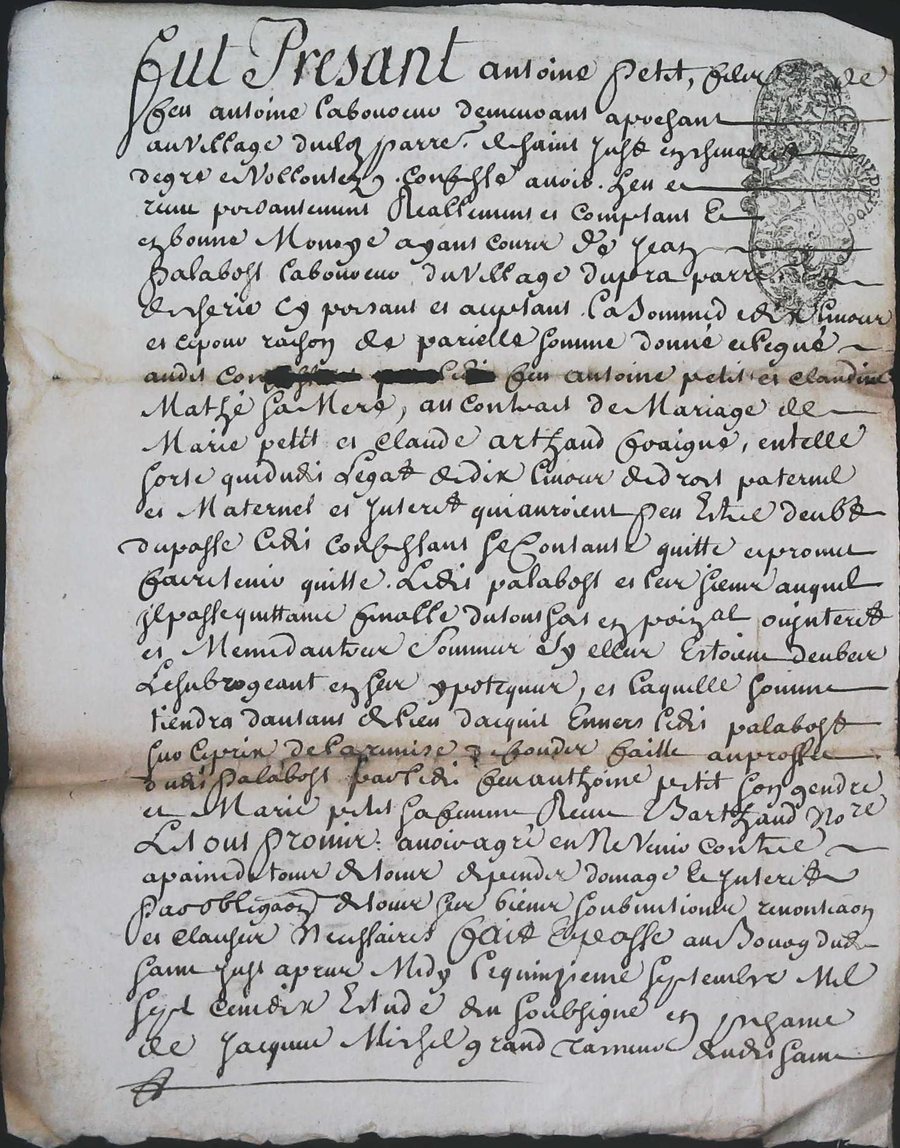 Fut Presant antoine petit, fils
feu antoine laboureur demeurant
au village du parre. de saint Just en
degré et vollonté, confesse avoir heu et
receu presantement Reallement et comptant
en bonne Monoye ayant cours de Jean
palabost laboureur du village du pra parre
de cherie cy presant et aceptant la somme de dix livres
et ce pour raison de parielle somme donné et legué
audit feu antoine petit et claudine
Mathé sa Mere, au contrait de Mariage de
Marie petit et claude arthaud, en telle
sorte que dudit Legat de dix livres de droit paternel
et Maternel et Interet qui auroient peu Estre deubt
du passe ledit confessant se contante quitte et promet
faire tenir quitte. Ledit palabost et les siens auquel
il passe quittance finalle du tout soit en poizal ou interet
et Mesme d'autres sommes sy elles Estoient deubes
Le subrogeant en ses ypoteques, et laquelle somme
tiendra dautant de lieu dacquit Envers ledit palabost
sur le prix de la remise de faitte au proffit
dudit palabost par ledit feu anthoine petit son gendre
et Marie petit sa femme Receu Barthaud Nore
Le tout promis avoir agré et Ne Venir contre
a paine de tous despends domage et Interet
par obligaon de tous ses biens soubmitions renontiaon
et clauses Necessaires fait et passe au Bourg dudit
saint Just apres Midy le quinzieme septembre Mil
sept cent dix Estude du soubsigné en presance
de Jacques Michel grand dudit saint